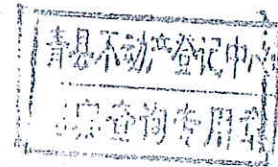 青县不动产登记中心
查询专用章